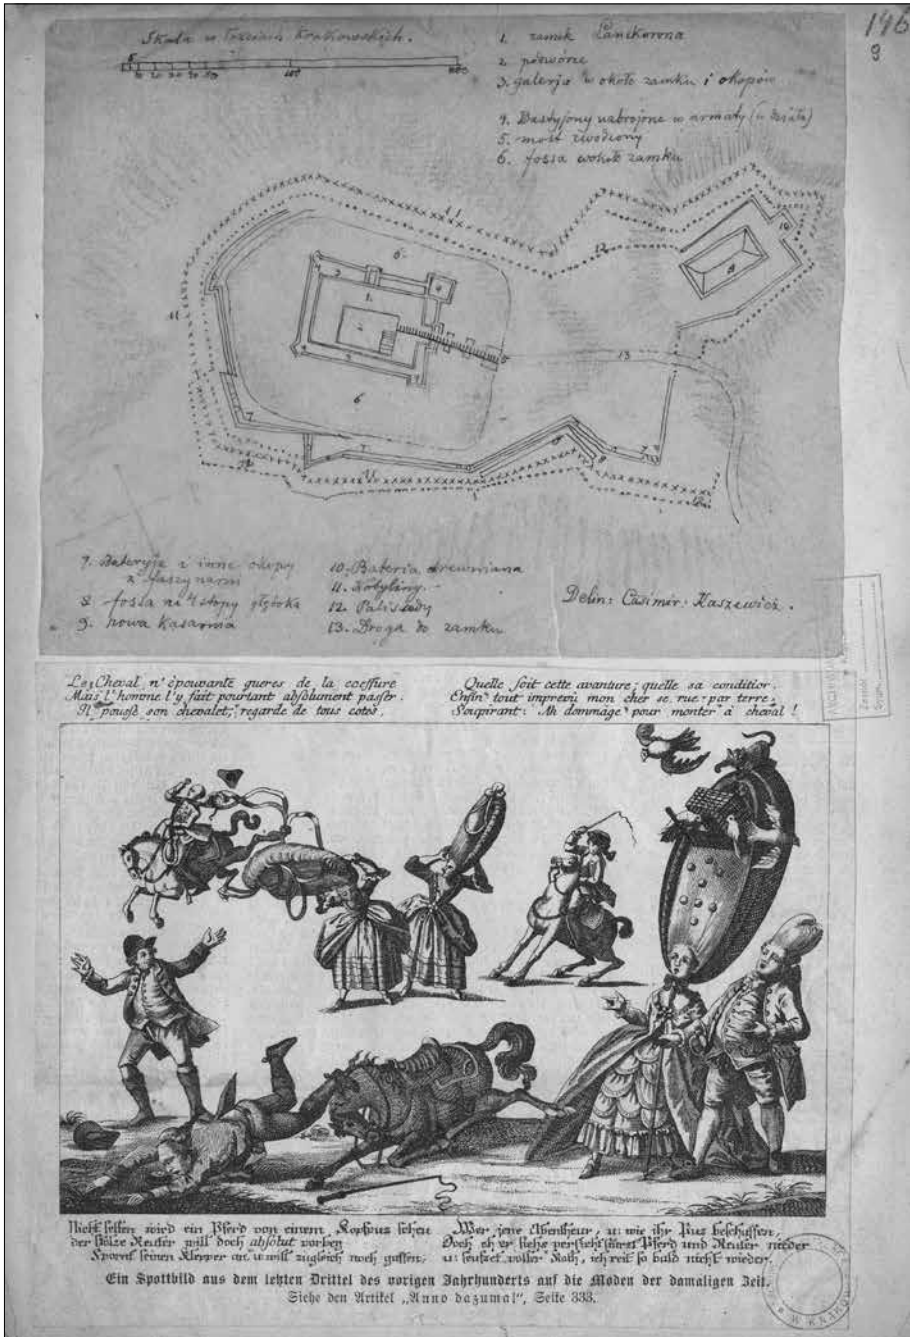 146
9
Skala w łokciach Krakowskich.
1. zamek Lanckorona
2. podwórze
3. galerja w około zamku i okopów
4. Bastyjony uzbrojone w armaty
5. most zwodzony
6. fossa wokoło zamku
7. Bateryje i inne okopy
z faszynami
8. fossa na 4 stopy głęboka
9. nowa Kasarnia
10. Bateria drewniana
11. Kobyliny
12. Palisady
13. Droga do zamku
Delin: Casimir: Kaszewicz.
Le Cheval n'épouvante gueres de la coeffure
Mais l'homme l'y fait pourtant absolument passer.
Il pousse son chevalet, regarde de tous cotes,
Quelle soit cette avanture; quelle sa condition.
Enfin tout imprevû mon cher se rue par terre;
Soupirant: Ah dommage pour monter à cheval!
Nicht selten wird ein Pferd von einem Kopfpus scheu
der stolze Reuter will doch absolut vorbey
Spornt seinen Klepper an, u. will zugleich noch gaffen,
Wer jene Ebentheur, u: wie ihr Pus beschaffen,
Doch eh er siehs versieht stürzt Pferd und Reuter nieder
u: seufzet voller Noth, ich reit so bald nicht wieder.
Ein Spottbild aus dem letzten Drittel des vorigen Jahrhunderts auf die Moden der damaligen Zeit.
Siehe den Artikel „Anno dazumal", Seite 333.